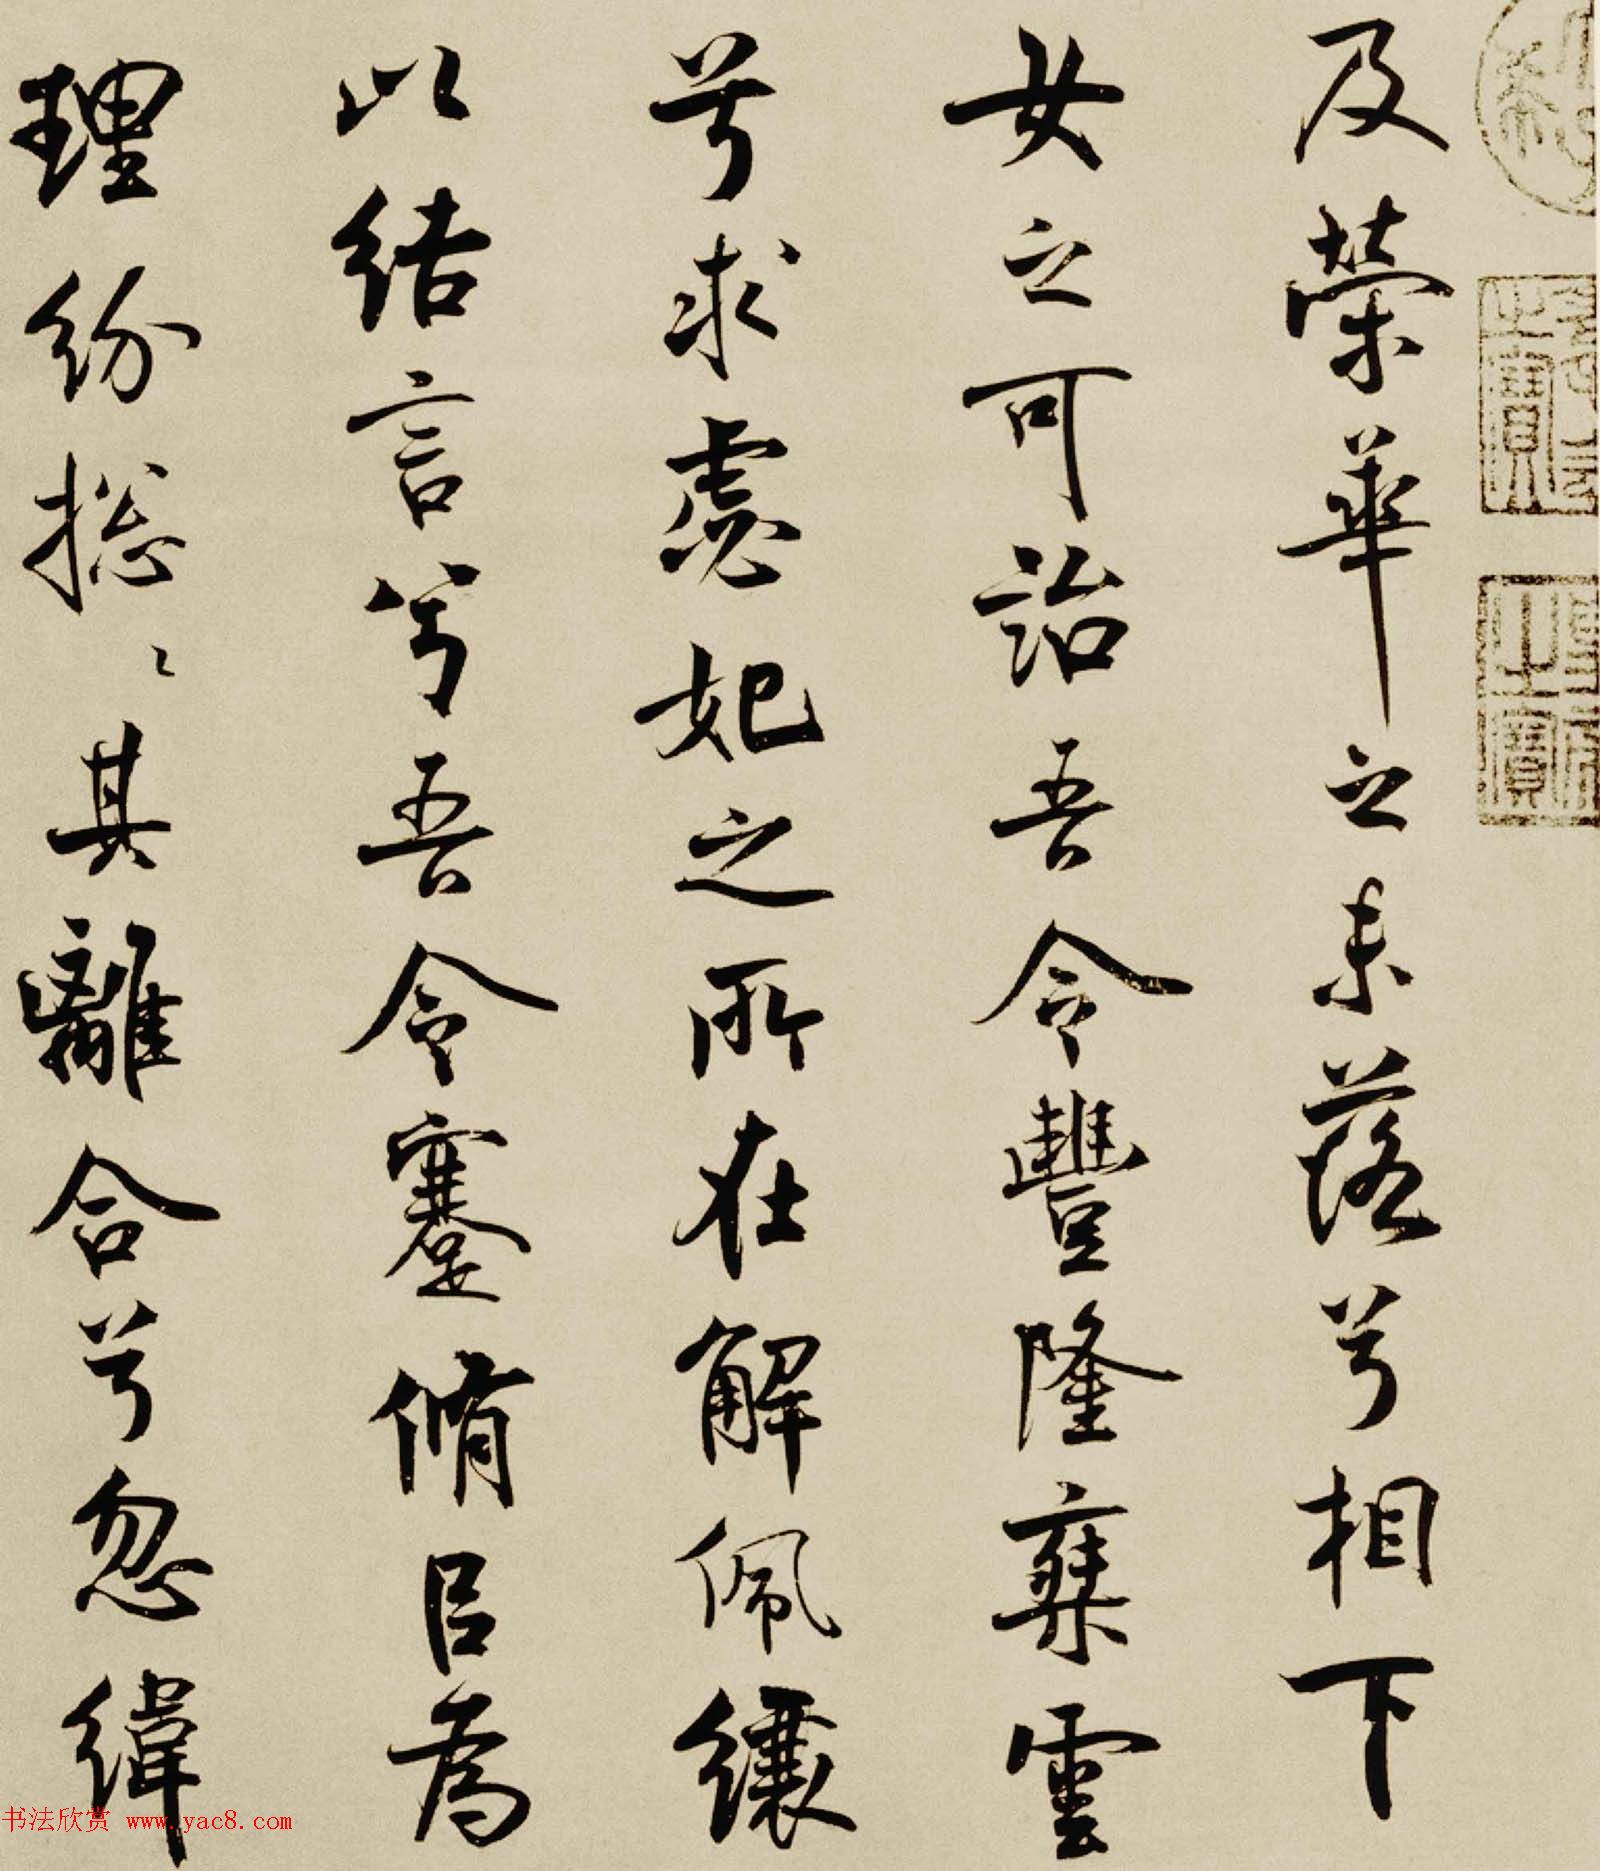 及榮華之未落兮相下
女之可詒吾令豐隆椉雲
兮求虙妃之所在解佩纕
以結言兮吾令蹇脩㠯為
理紛揔〻其離合兮忽緯
书法欣赏 www.yac8.com